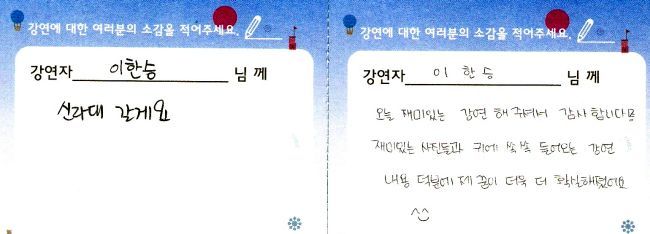 강연에 대한 여러분의 소감을 적어주세요.
강연자 이한승 님께
신라대 갈게요
강연에 대한 여러분의 소감을 적어주세요.
강연자 이한승 님께
오늘 재미있는 강연 해 주셔서 감사합니다
재미있는 사진들과 귀에 쏙쏙 들어오는 강연
내용 덕분에 제 꿈이 더욱 더 확실해졌어요
^^